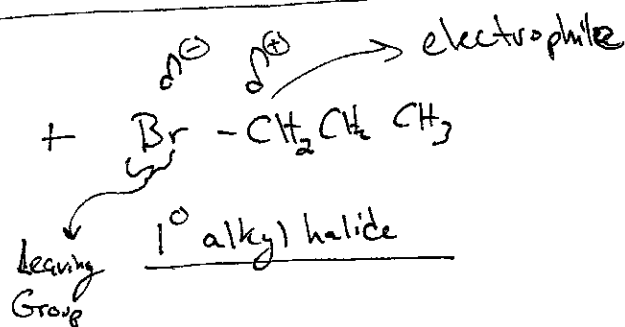 δ⊖ δ⊕ electrophile
+ Br - CH2 CH2 CH3
Leaving Group
1° alkyl halide